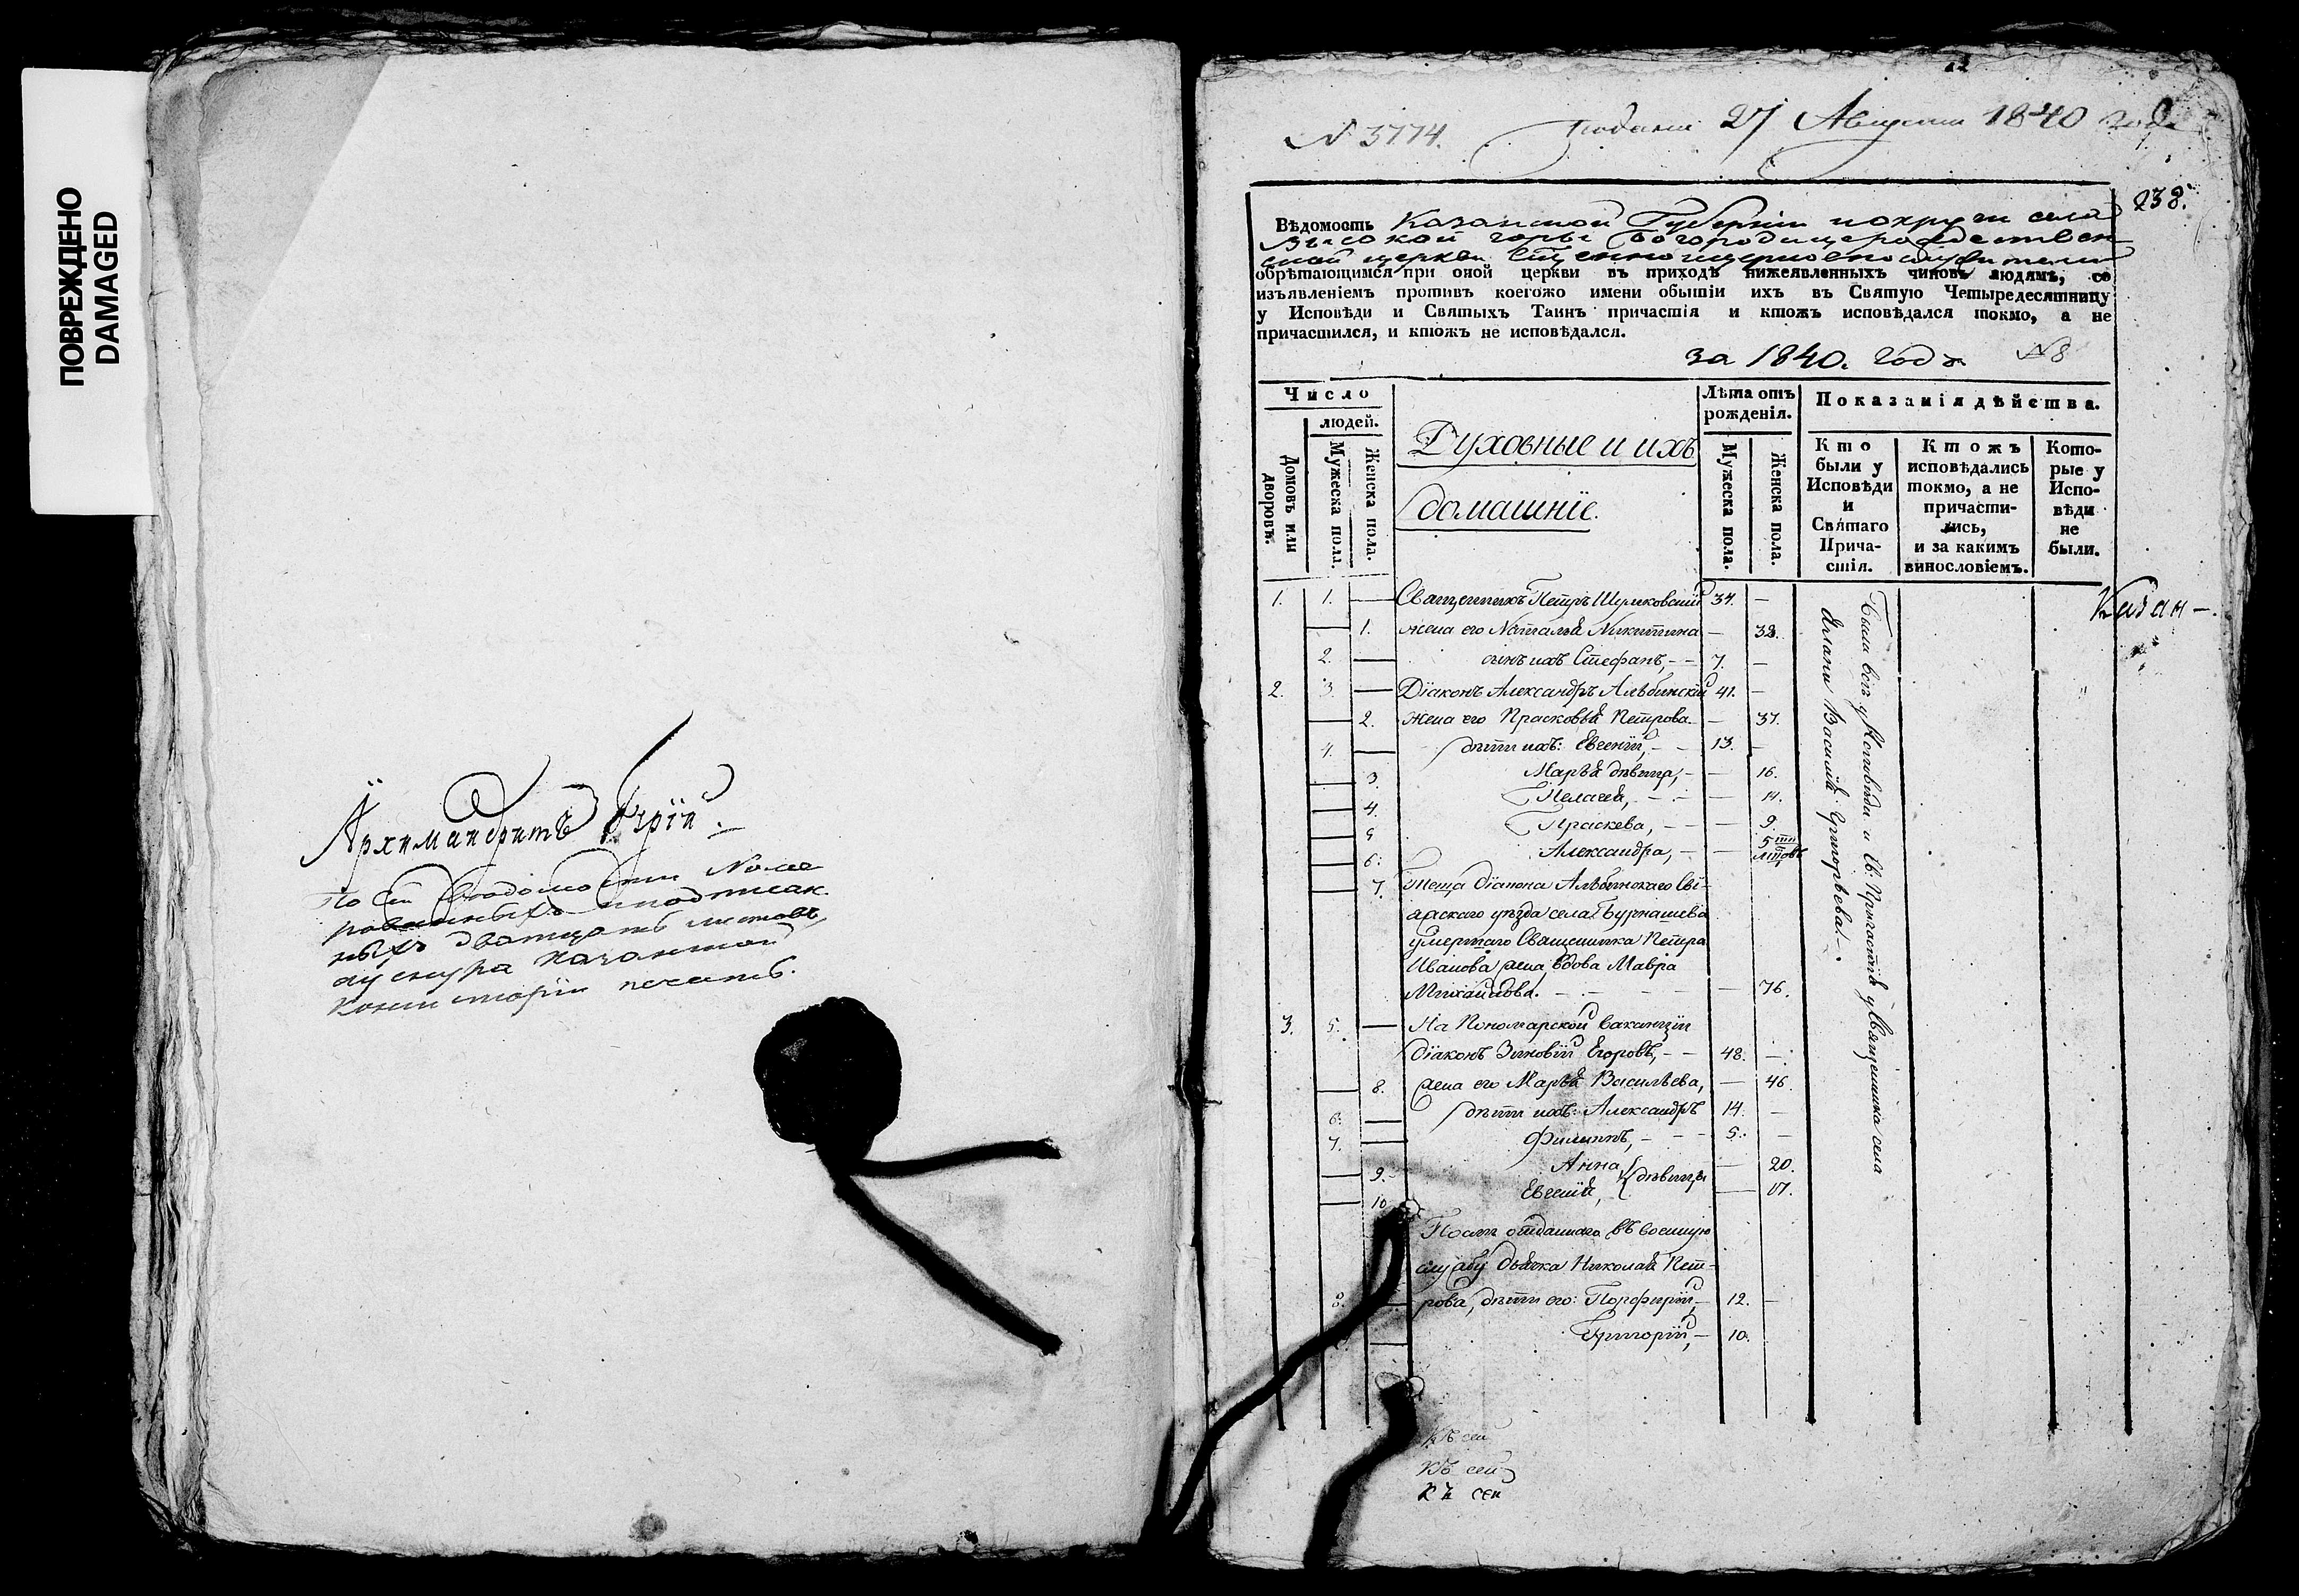 ПОВРЕЖДЕНО
DAMAGED
Архимандритъ Гурій.
По сей Ведомости Номе
рованныхъ и подписан
ныхъ дватцать листовъ,
ау снура Казанской
Консисторіи печать.
№ 3774. Подана 27 Августа 1840 года
238.
Вѣдомость Казанской Губерніи и округи села
Высокой горы Богородицерождествен
ской церкви священноцерковнослужители
обрѣтающимся при оной церкви въ приходѣ нижеявленныхъ чиновъ людямъ, со
изъявленіемъ противъ коегожо имени бытіи ихъ въ Святую Четыредесятницу
у Исповѣди и Святыхъ Таинъ причастія и ктожъ исповѣдался токмо, а не
причастился, и ктожъ не исповѣдался.
за 1840. годъ №8
Число
людей.
Домовъ или дворовъ.
Мужеска пола.
Женска пола.
Духовные и ихъ
домашніе.
Лѣта отъ
рожденія.
Мужеска пола.
Женска пола.
Показанія дѣйства.
Кто
были у
Исповѣди
и
Святаго
Прича-
стія.
Ктожъ
исповѣдались
токмо, а не
причасти-
лись,
и за какимъ
винословіемъ.
Кото-
рые у
Испо-
вѣди
не
были.
1. 1. — Священникъ Петръ 34. —
— 1. жена его Наталья Никитина — 32.
2. — сынъ ихъ Стефанъ, - - 7. —
2. 3. — Діаконъ Александръ Альбинскій 41. —
— 2. жена его Прасковья Петрова - — 37.
4. — дѣти ихъ: Евгеній, - 13. —
— 3. Марья дѣвица, - — 16.
— 4. Пелагея, - - — 14.
— 5 Праскева, - — 9.
— 6. Александра, - — 5ти лѣтъ
— 7. Теща діакона Альбинскаго Сві-
яжскаго уѣзда села Бурнашева
умершаго Священника Петра
Иванова жена, вдова Мавра
Михайлова. - - - — 76.
3. 5. — На Пономарской ваканціи
діаконъ Зиновій Егоровъ, - - 48. —
— 8. жена его Марья Васильева, — 46.
6. — дѣти ихъ: Александръ 14. —
7. — Филиппъ, - - 5. —
— 9. Анна — 20.
дѣвицы
— 10 Евгенія, — 17.
Послѣ отданнаго въ военную
службу дьячка Николая Пет-
8. — рова, дѣти его: Порфирій, - 12. —
— Григорій, - 10.
Были всѣ у Исповѣди и Св: Причастія у Священника села
Василья Григорьева. -
Казан -
Къ сей
Къ сей
Къ сей